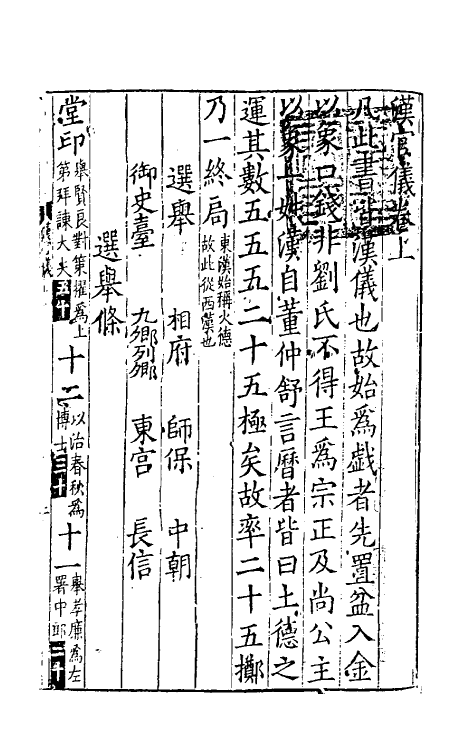 漢官儀卷上
凡此書皆漢儀也故始爲戱者先置盆入金
以象口錢非劉氏不得王爲宗正及尚公主
以象土始漢自董仲舒言曆者皆曰土德之
運其數五五五二十五極矣故率二十五擲
乃一終局東漢始稱火德故此從西漢也
選舉 相府 師保 中朝
御史臺 九卿列卿 東宮 長信
選舉條
堂印舉賢良對策擢爲上第拜諫大夫五十 十二以治春秋爲博士三十 十一舉孝廉爲左署中郎二十